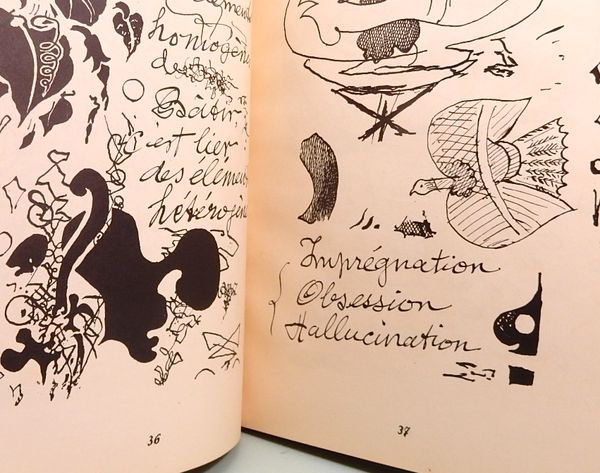 homogène
de
Bâtir
c'est lier
des élémen
hétérogèn
36
Imprégnation
Obsession
Hallucination
37